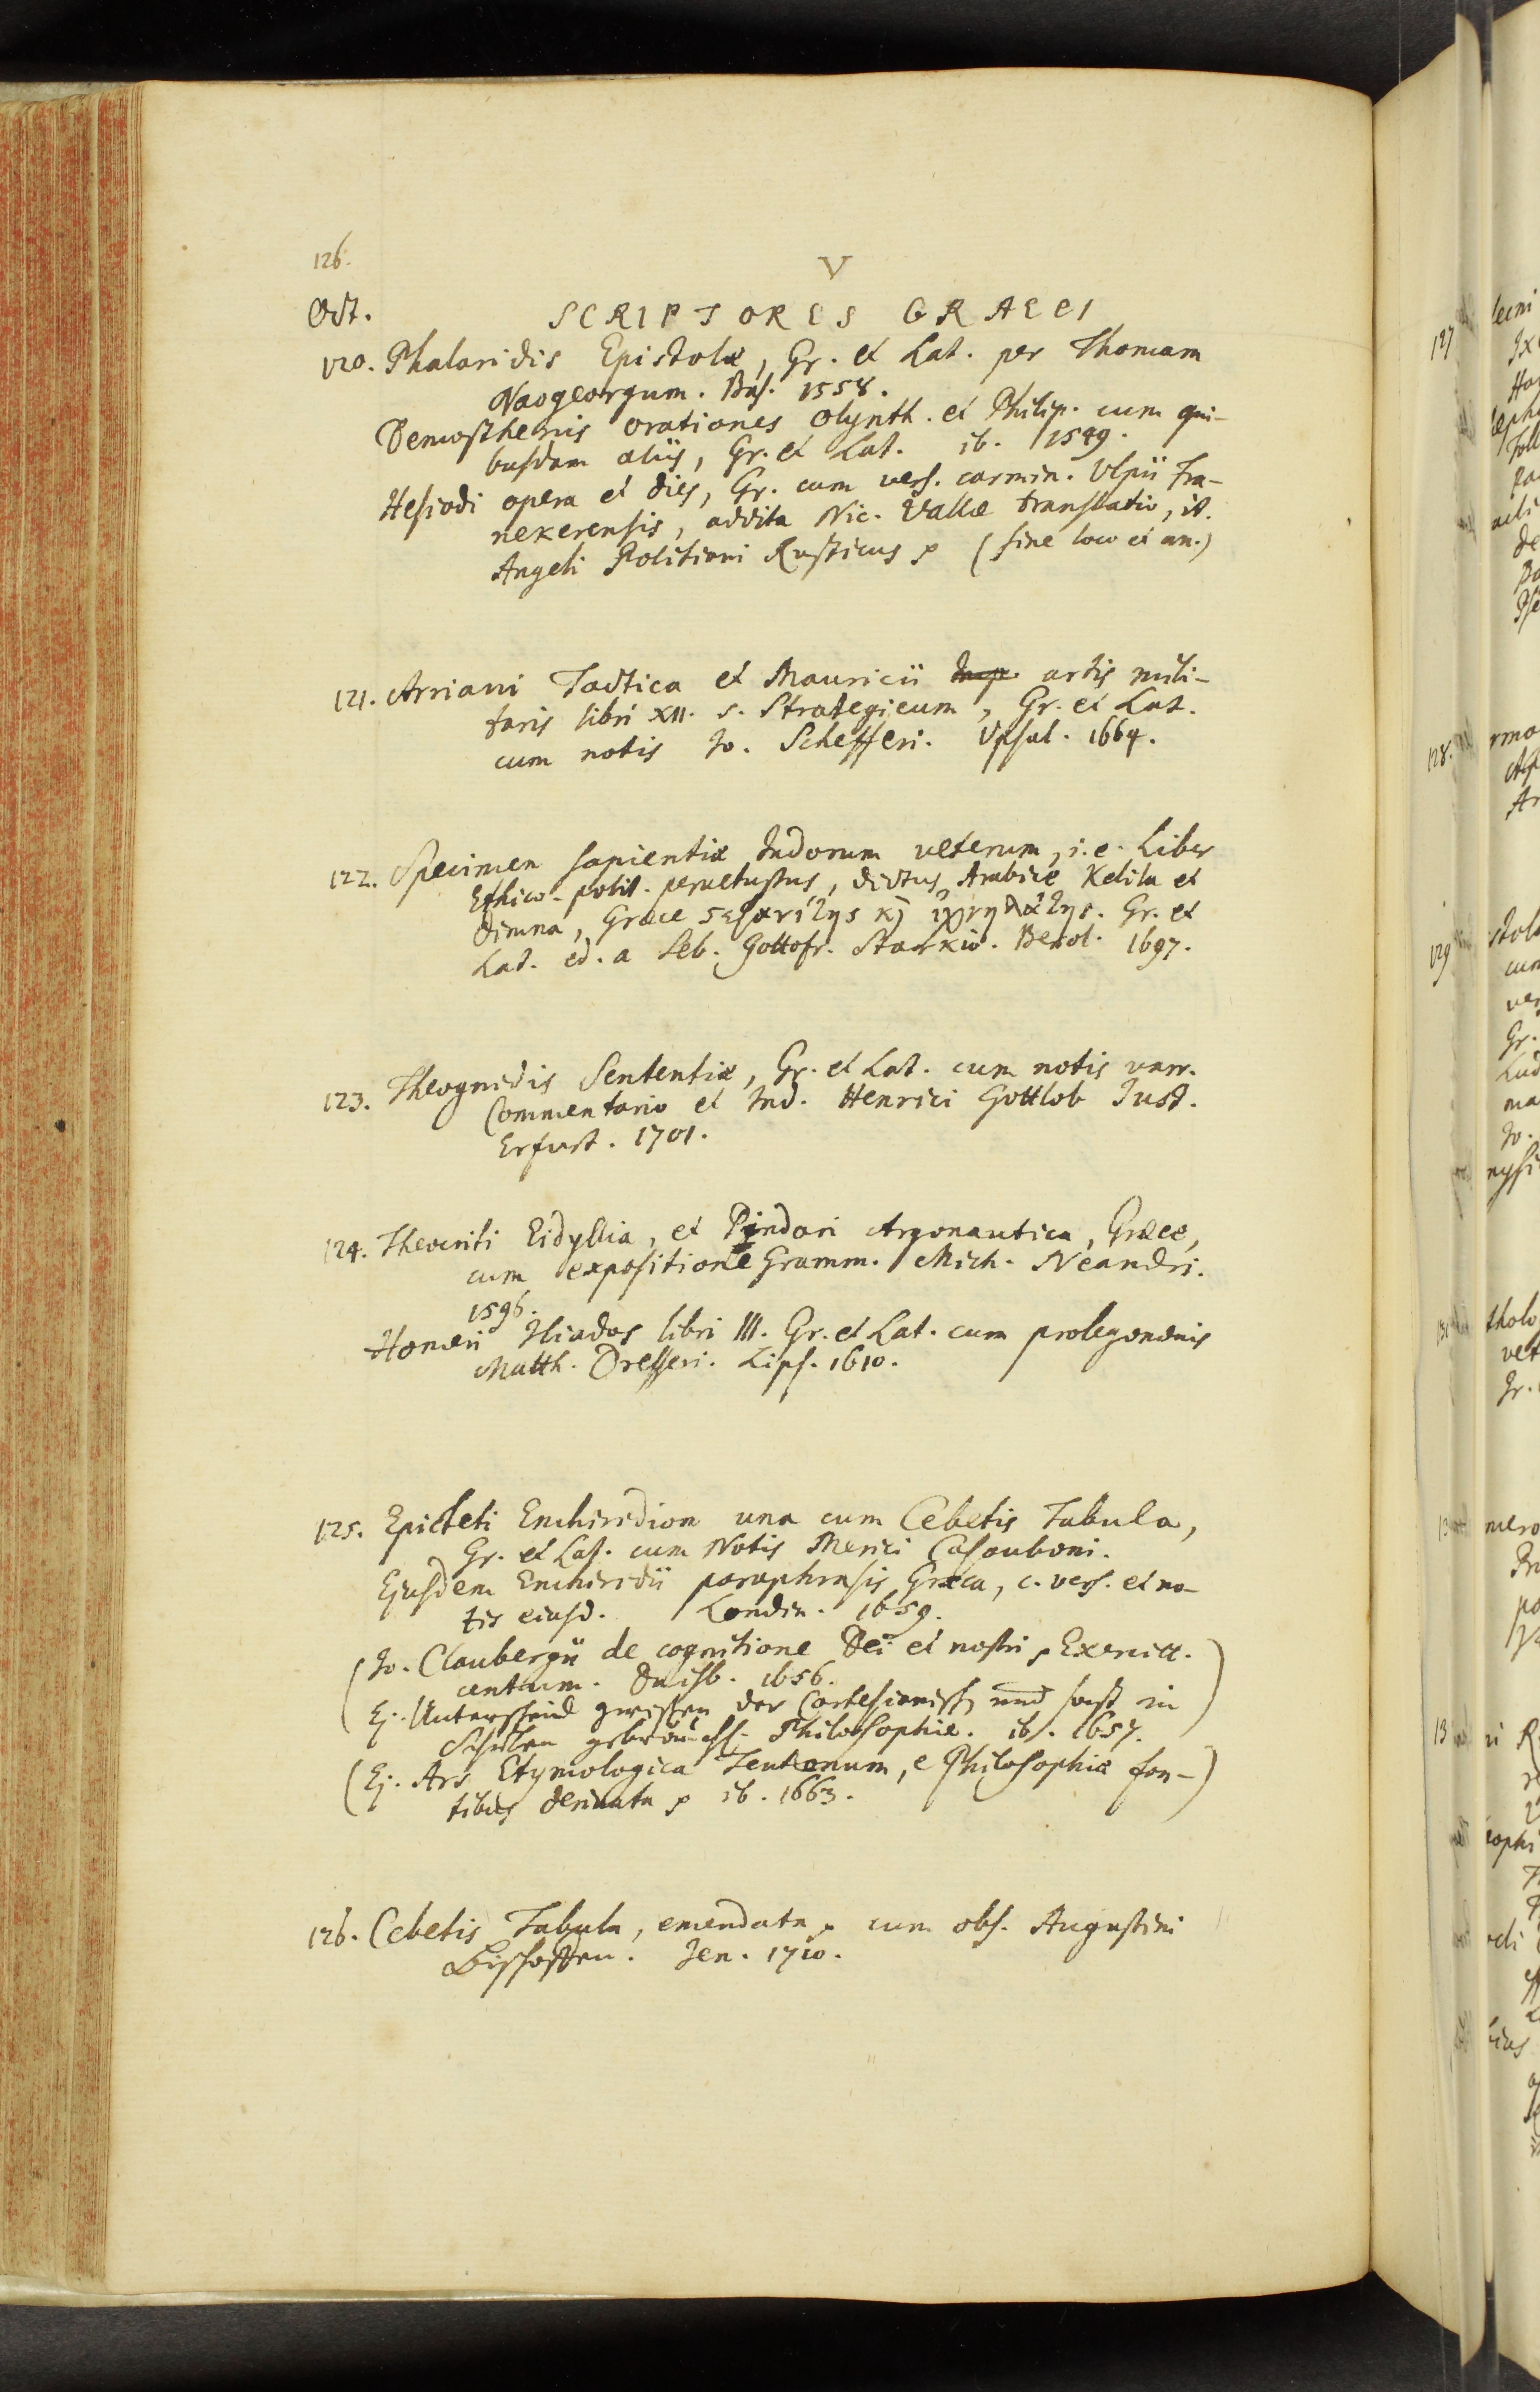 126.
V
Oct.
SCRIPTORES GRAECI
120. Phalaridis Epistolæ, Gr. et Lat. per Thomam
Naogeorgum. Bas. 1558.
Demosthenis orationes Olynth. et Philip. cum qui-
busdam aliis, Gr. et Lat. ib. 1549.
Hesiodi opera et dies, Gr. cum vers. carmin. Ulpii Fra-
nekerensis, addita Nic. Vallæ translatio, it.
Angeli Politiani Rusticus (sine loco et an.)
121. Arriani Tactica et Mauricii Imp. artis mili-
taris libri XII. s. Strategicum, Gr. et Lat.
cum notis Jo. Schefferi. Upsal. 1664.
122. Specimen sapientiæ Indorum veterum, i.e. Liber
Ethico-polit. pervetustus, dictus Arabice Kelila et
Dimna, Græce ςεφανίτης κ ἰχνηλάτης. Gr. et
Lat. ed. a Seb. Gottofr. Starkio. Berol. 1697.
123. Theognidis Sententiæ, Gr. et Lat. cum notis varr.
Commentario et Ind. Henrici Gottlob Just.
Erfurt. 1701.
124. Theocriti Eidyllia, et Pindari Argonautica, Græce,
cum expositione Gramm. Mich. Neandri.
1596.
Homeri Iliados libri III. Gr. et Lat. cum prolegomenis
Matth. Dresseri. Lips. 1610.
125. Epicteti Enchiridion una cum Cebetis Tabula,
Gr. et Lat. cum Notis Merici Casauboni.
Ejusdem Enchiridii paraphrasis Græca, c. vers. et no-
tis eiusd. Londin. 1659.
(Jo. Claubergii de cognitione Dei et nostri Exercitt.
centum. Duisb. 1656.
Ej. Unterscheid zwischen der Cartesianisch und sonst in
Schulen gebräuchl. Philosophie. ib. 1657.)
(Ej. Ars Etymologica Teutonum, e Philosophiæ fon-
tibus derivata ib. 1663.)
126. Cebetis Tabula, emendata cum obs. Augustini
Bischoffen. Jen. 1710.